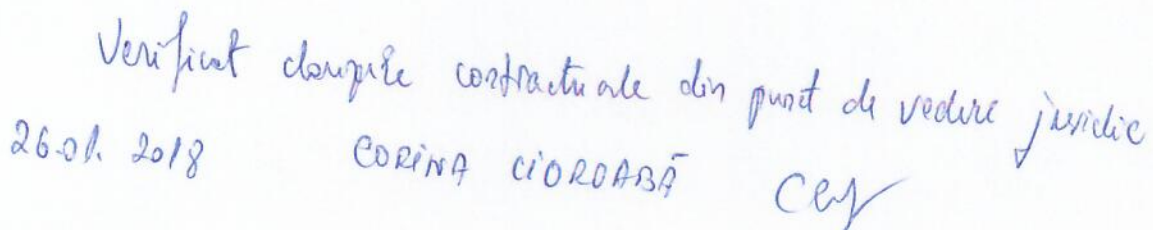 Verificat clauzele contractuale din punct de vedere juridic
26.01.2018 CORINA CIOROABĂ